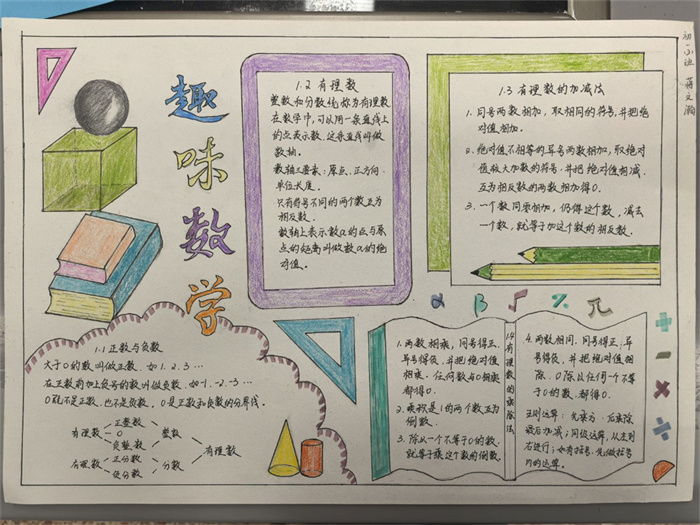 初一3班 蒋文瀚
趣味数学
1.2 有理数
整数和分数统称为有理数
在数学中,可以用一条直线上
的点表示数,这条直线叫做
数轴。
数轴三要素:原点、正方向、
单位长度。
只有符号不同的两个数互为
相反数。
数轴上表示数a的点与原
点的距离叫做数a的绝
对值。
1.3 有理数的加减法
1. 同号两数相加,取相同的符号,并把绝
对值相加。
2. 绝对值不相等的异号两数相加,取绝对
值较大加数的符号,并把绝对值相减.
互为相反数的两数相加得0.
3. 一个数同零相加,仍得这个数,减去
一个数,就等于加这个数的相反数。
α β √ % π
+
-
×
÷
1.1 正数与负数
大于0的数叫做正数。如1.2.3…
在正数前加上负号的数叫做负数。如-1.-2.-3…
0既不是正数,也不是负数。0是正数和负数的分界线。
有理数
正整数
0
负整数
整数
有理数
正分数
负分数
分数
有理数
1.4 有理数的乘除法
1. 两数相乘,同号得正,
异号得负,并把绝对值
相乘。任何数与0相乘
都得0.
2. 乘积是1的两个数互为
倒数。
3. 除以一个不等于0的数,
就等于乘这个数的倒数。
4. 两数相同,同号得正,异
号得负,并把绝对值相
除。0除以任何一个不等
于0的数,都得0.
法则运算:先乘方,后乘除,
最后加减;同级运算,从左到
右进行;如有括号,先做括号
内的运算。